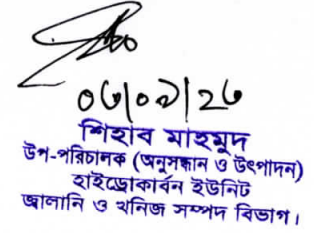 ০৩/০৯/২৩
শিহাব মাহমুদ
উপ-পরিচালক (অনুসন্ধান ও উৎপাদন)
হাইড্রোকার্বন ইউনিট
জ্বালানি ও খনিজ সম্পদ বিভাগ।